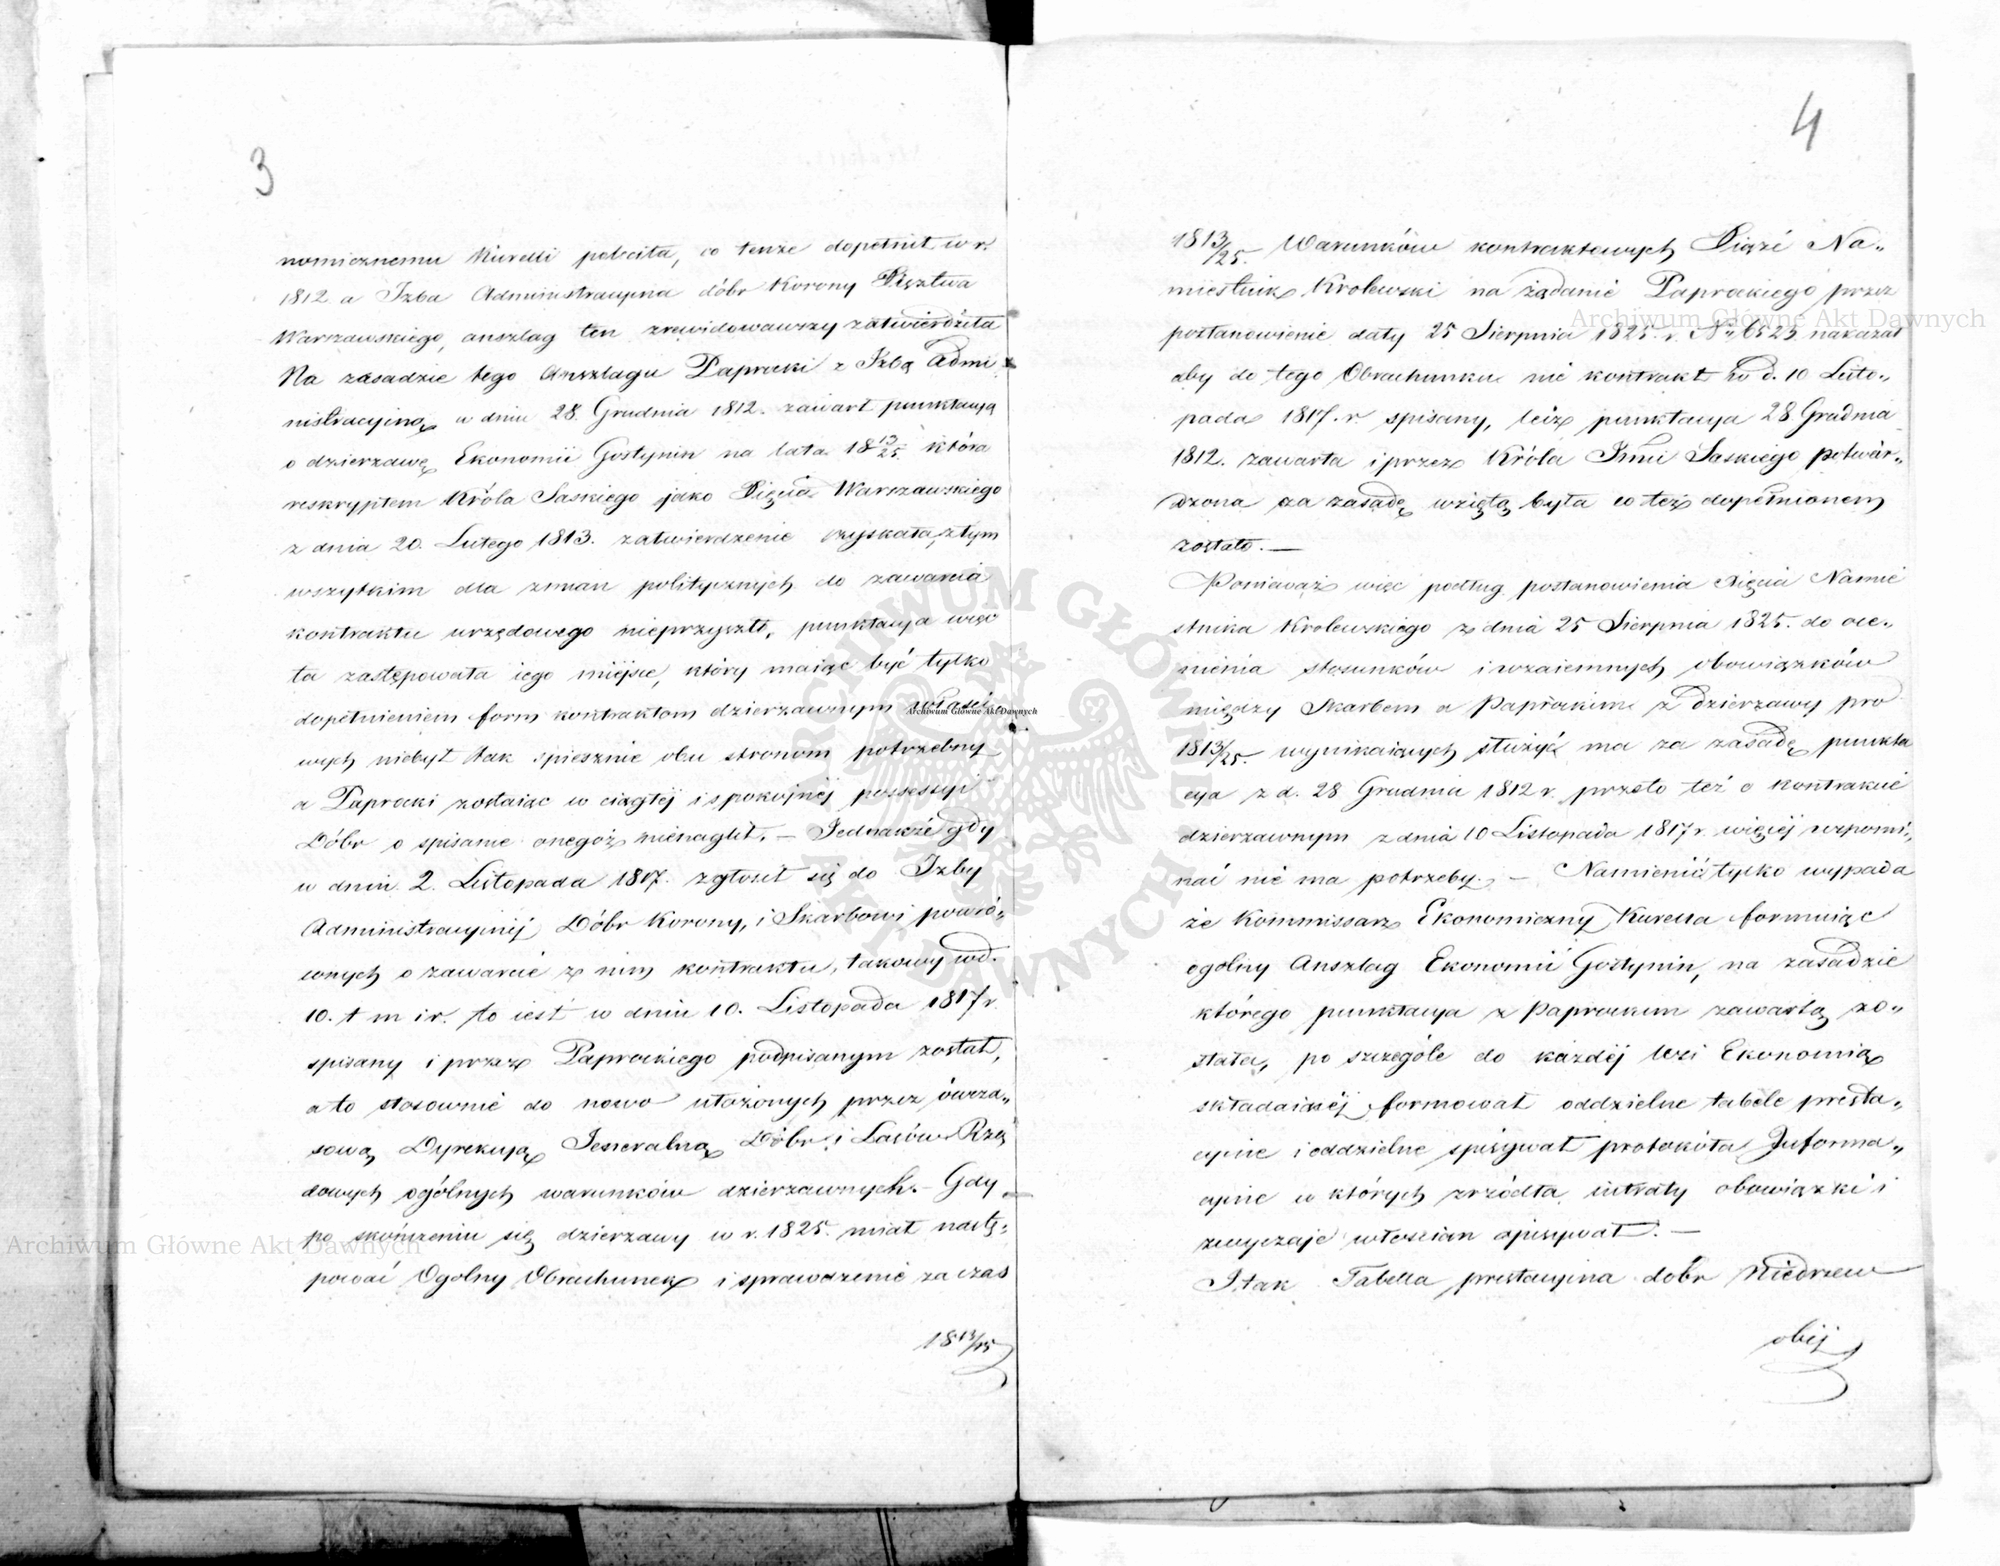 3
nomicznemu Kurelli poleciła, co tenże dopełnił w r.
1812 a Izba Administracyina dóbr Korony Xięztwa
Warszawskiego, anszlag ten zrewidowawszy zatwierdziła
Na zasadzie tego Anszlagu Paprocki z Izbą Admi
nistracyiną w dniu 28 Grudnia 1812. zawarł punktacyą
o dzierzawę Ekonomii Gostynin na lata 18 13/25 która
reskryptem Króla Saskiego jako Xięcia Warszawskiego
z dnia 20. Lutego 1813. zatwierdzenie zyskała, z tym
wszytkim dla zmian politycznych do zawarcia
kontraktu urzędowego nieprzyszło, punktacya więc
ta zastępowała iego miejsce, który maiąc być tylko
dopełnieniem form kontraktom dzierzawnym właści
wych niebył tak spiesznie obu stronom potrzebny
a Paprocki zostaiąc w ciągłéj i spokojnéj possessyi
Dóbr o spisanie onegoż nienaglił. — Jednakże gdy
w dniu 2. Listopada 1817. zgłosił się do Izby
Administracyinéj Dóbr Korony, i Skarbowi powró„
conych o zawarcie z nim kontraktu, takowy w d.
10. t m i r. to iest w dniu 10. Listopada 1817 r.
spisany i przez Paprockiego podpisanym został,
a to stosownie do nowo ułożonych przez ówcza„
sową Dyrekcyą Jeneralną Dóbr i Lasów Rzą
dowych ogólnych warunków dzierzawnych. — Gdy
po skończeniu się dzierzawy w r. 1825. miał nastę„
pować Ogolny Obrachunek i sprawdzenie za czas
18 13/25
4
1813/25. Warunków kontraktowych Xiąże Na„
miestnik Krolewski na żądanie Paprockiego przez
postanowienie daty 25 Sierpnia 1825. r. No 6523 nakazał
aby do tego Obrachunku nie kontrakt w d. 10 Listo„
pada 1817. r. spisany, lecz punktacya 28 Grudnia
1812. zawarta i przez Króla Jmci Saskiego potwier„
dzona za zasadę wziętą była co też dopełnionem
zostało. —
Ponieważ więc podług postanowienia Xięcia Namie
stnika Krolewskiego z dnia 25 Sierpnia 1825. do oce„
nienia stosunków i wzaiemnych obowiązków
między Skarbem a Paprockim z dzierzawy pro
1813/25. wynikaiących służyć ma za zasadę punkta
cya z d. 28 Grudnia 1812 r. przeto też o kontrakcie
dzierzawnym z dnia 10 Listopada 1817 r. więcéj wspomi„
nać nie ma potrzeby. — Namienić tylko wypada
że Kommissarz Ekonomiczny Kurella formuiąc
ogolny Anszlag Ekonomii Gostynin, na zasadzie
którego punktacya z Paprockim zawartą zo„
stała, po szczególe do każdéj wsi Ekonomią
składaiącéj formował oddzielne tabele presta„
cyine i oddzielne spisywał protokóła Informa„
cyine w których zrzódła intraty obowiązki i
zwyczaje włoscian opisywał. —
I tak Tabella prestacyina dobr Niedrzew
obej
Archiwum Główne Akt Dawnych
Archiwum Główne Akt Dawnych
Archiwum Główne Akt Dawnych
ARCHIWUM GŁÓWNE AKT DAWNYCH